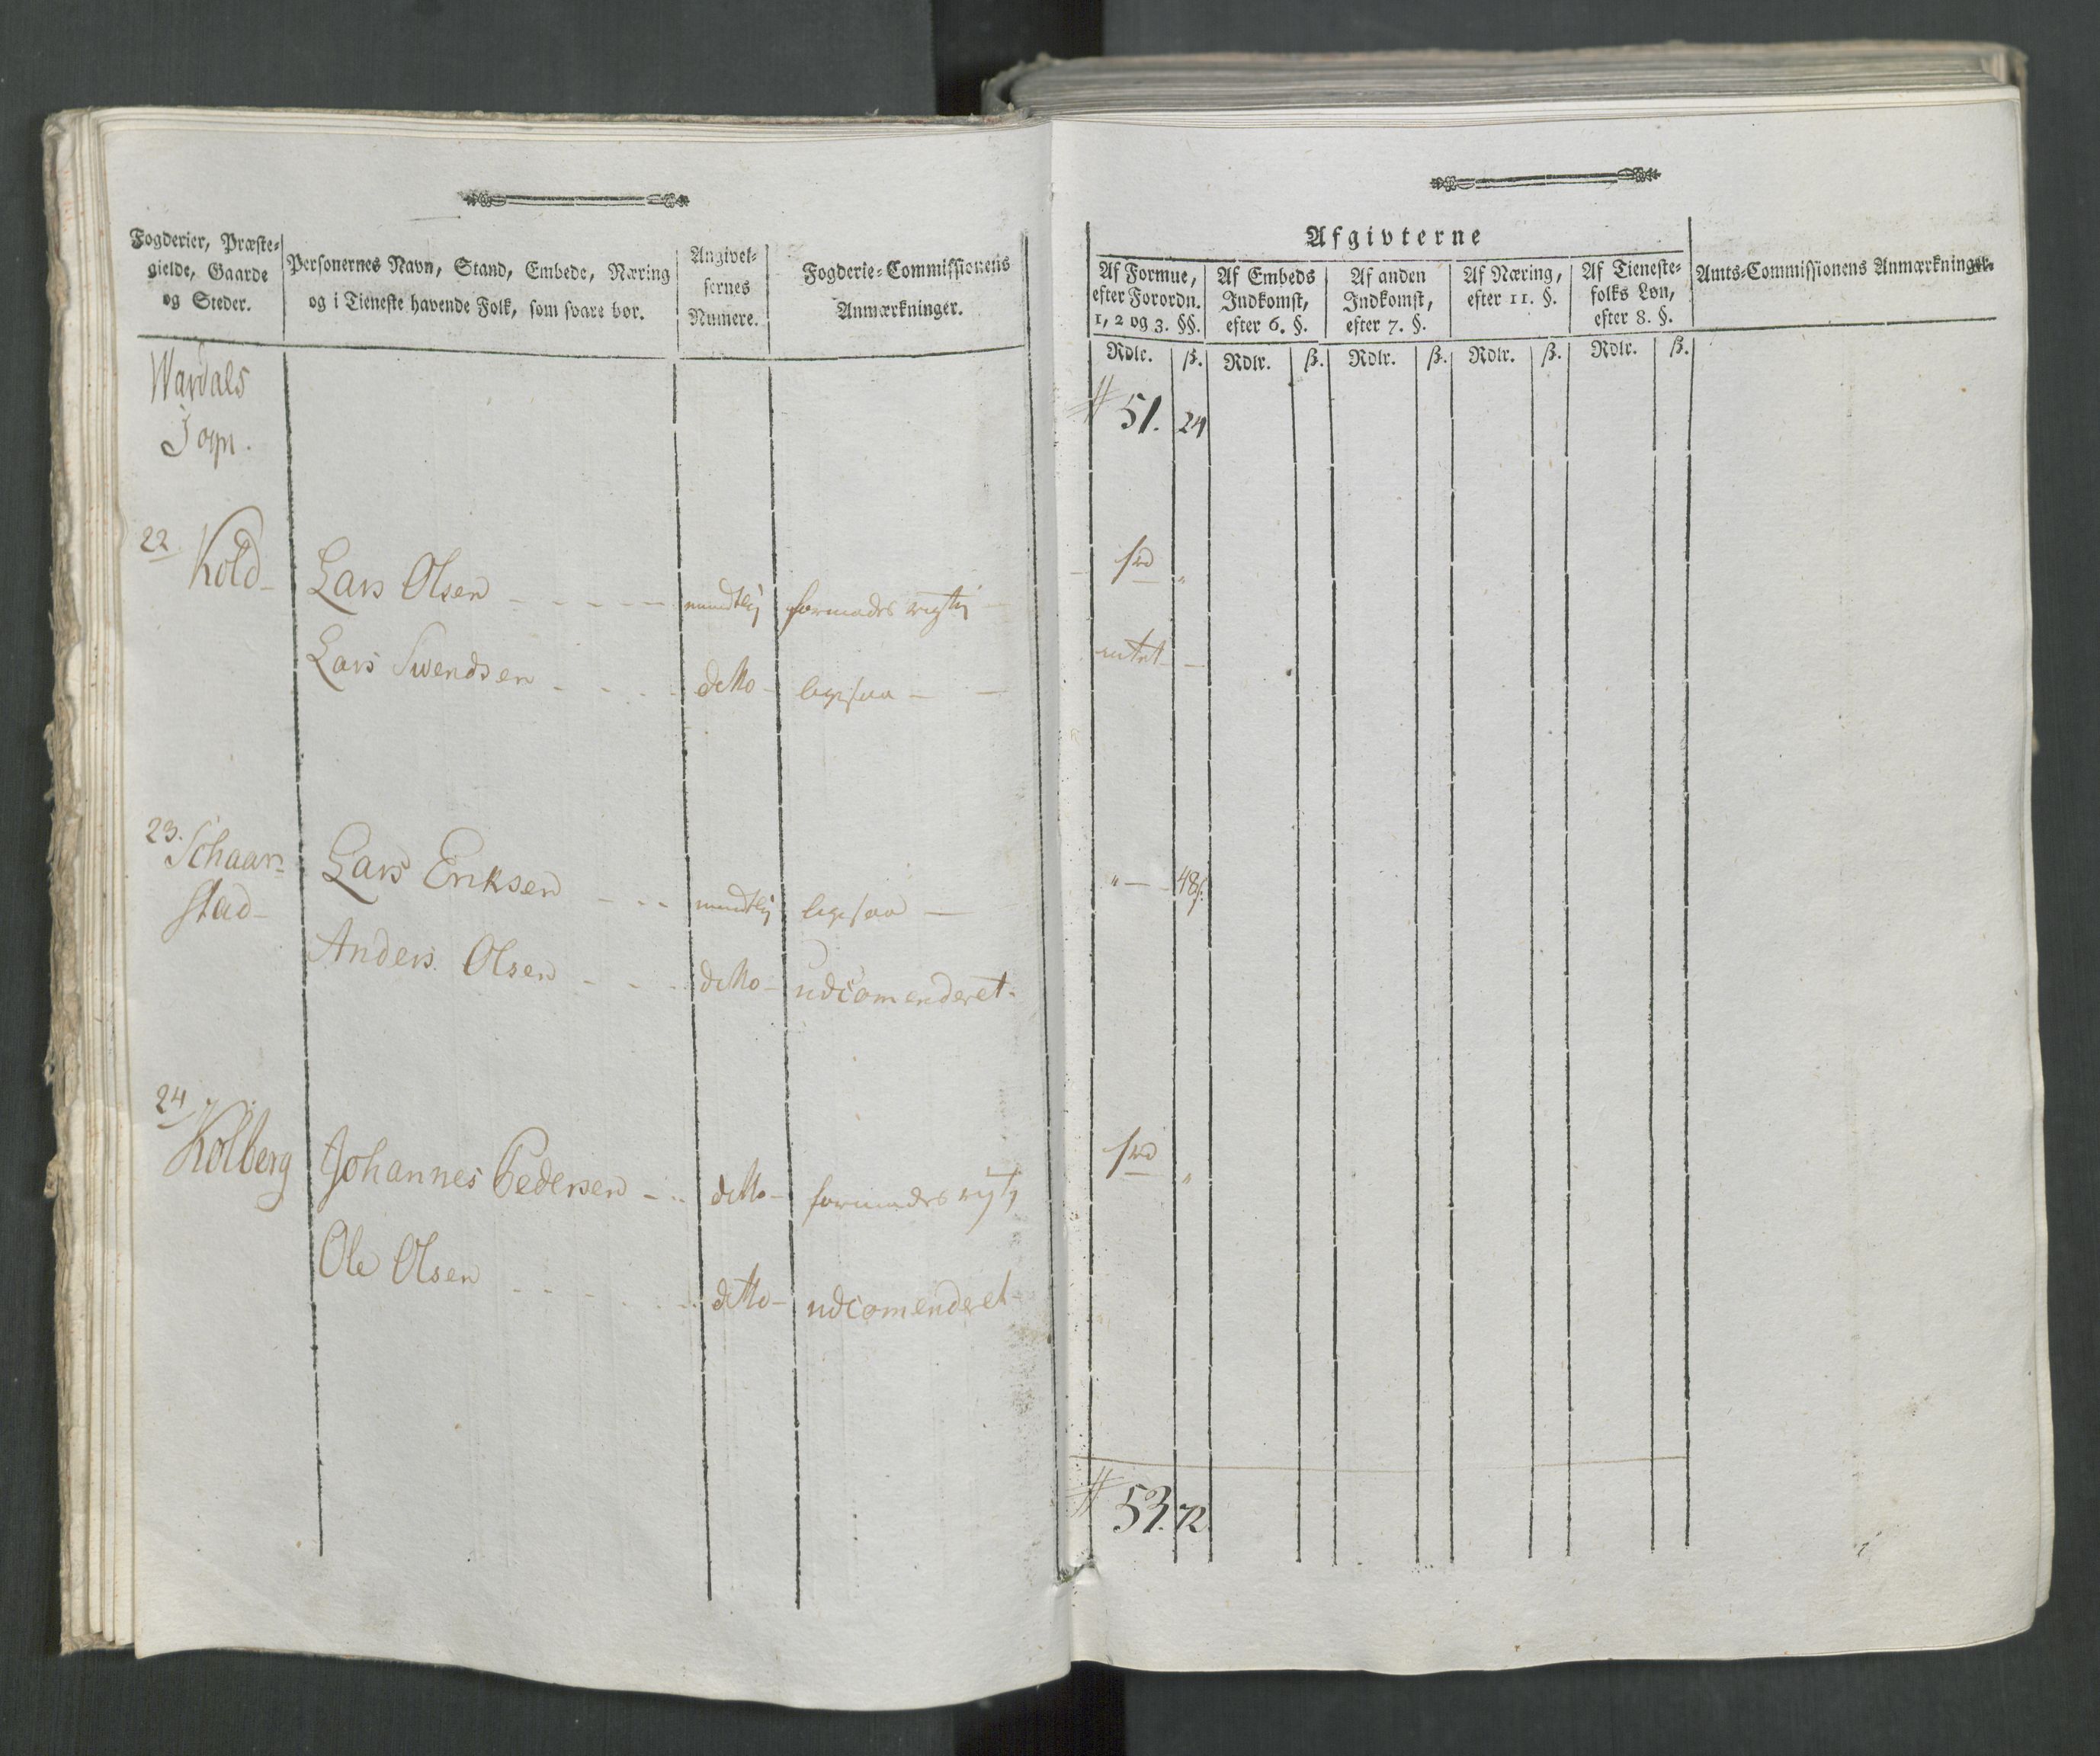 Fogderier, Præste-
gielde, Gaarde
og Steder.
Personernes Navn, Stand, Embede, Næring
og i Tieneste havende Folk, som svare bør.
Angivel-
sernes
Numere.
Fogderie-Commissionens
Anmærkninger.
Wardals
Sogn.
22 Kold - Lars Olsen - - - - - mundtlig formodes rigtig -
Lars Swendsen - - - - ditto - ligesaa - -
23. Schaar-
stad -
Lars Eriksen - - - mundtlig ligesaa -
Anders Olsen - - - ditto - udcomenderet -
24 Kolberg Johannes Pedersen - - ditto - formodes rigtig
Ole Olsen - - - - - ditto - udcomenderet -
Afgivterne
Af Formue,
efter Forordn.
1, 2 og 3. §§.
Af Embeds
Indkomst,
efter 6. §.
Af anden
Indkomst,
efter 7. §.
Af Næring,
efter 11. §.
Af Tieneste-
folks Løn,
efter 8. §.
Amts-Commissionens Anmærkninger.
Rdlr. ß. Rdlr. ß. Rdlr. ß. Rdlr. ß. Rdlr. ß.
51. 24
1 rd "
intet -
" - 48 ß.
1 rd "
53. 72